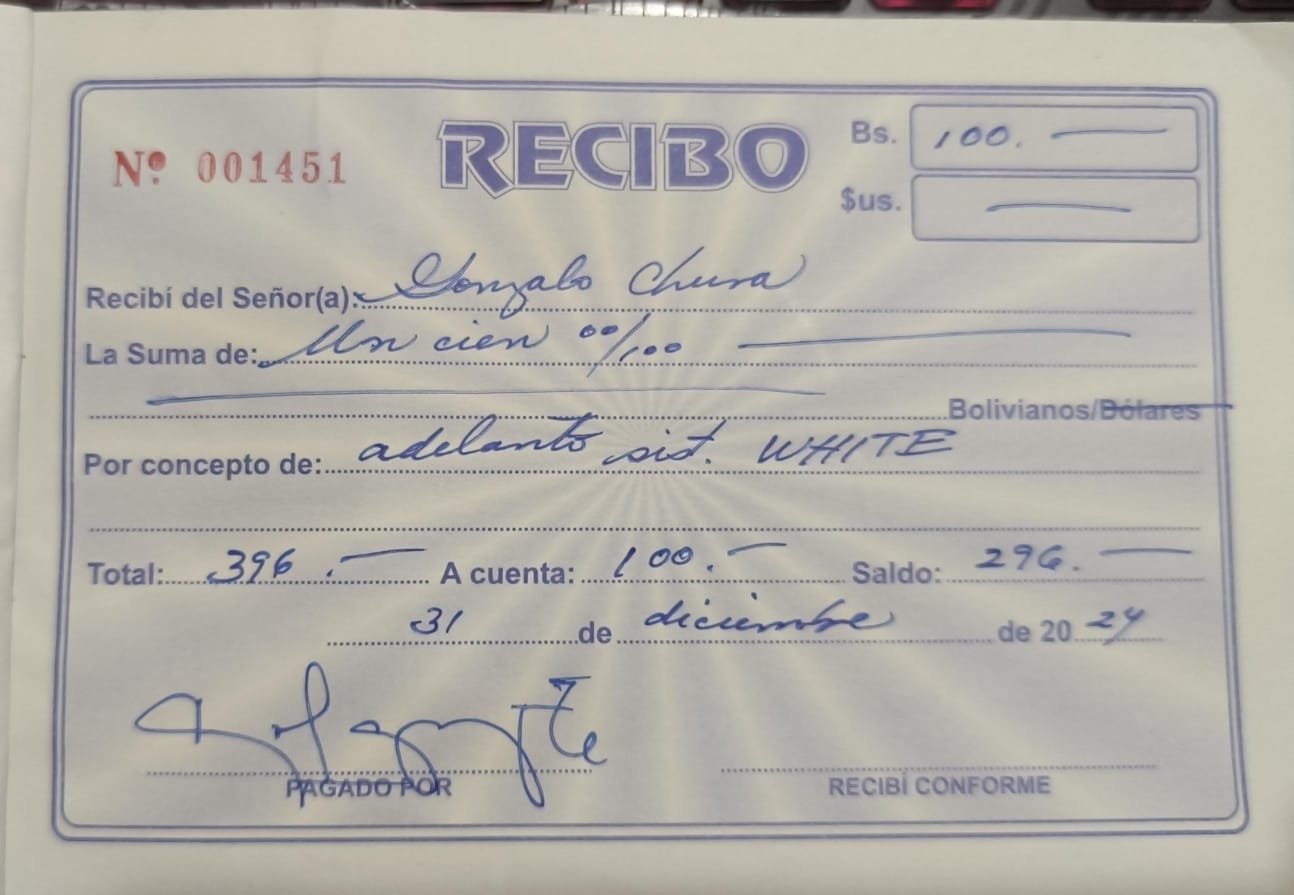 Nº 001451
RECIBO
Bs. 100.
$us.
Recibí del Señor(a): Gonzalo Chura
La Suma de: Un cien 00/100
Bolivianos/Dólares
Por concepto de: adelanto sist. WHITE
Total: 396. A cuenta: 100. Saldo: 296.
31 de diciembre de 2024
PAGADO POR
RECIBÍ CONFORME